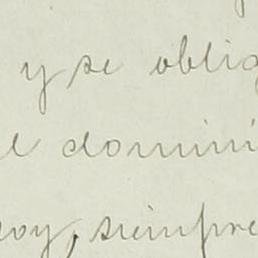 y se oblig
l domini
soy, siempre